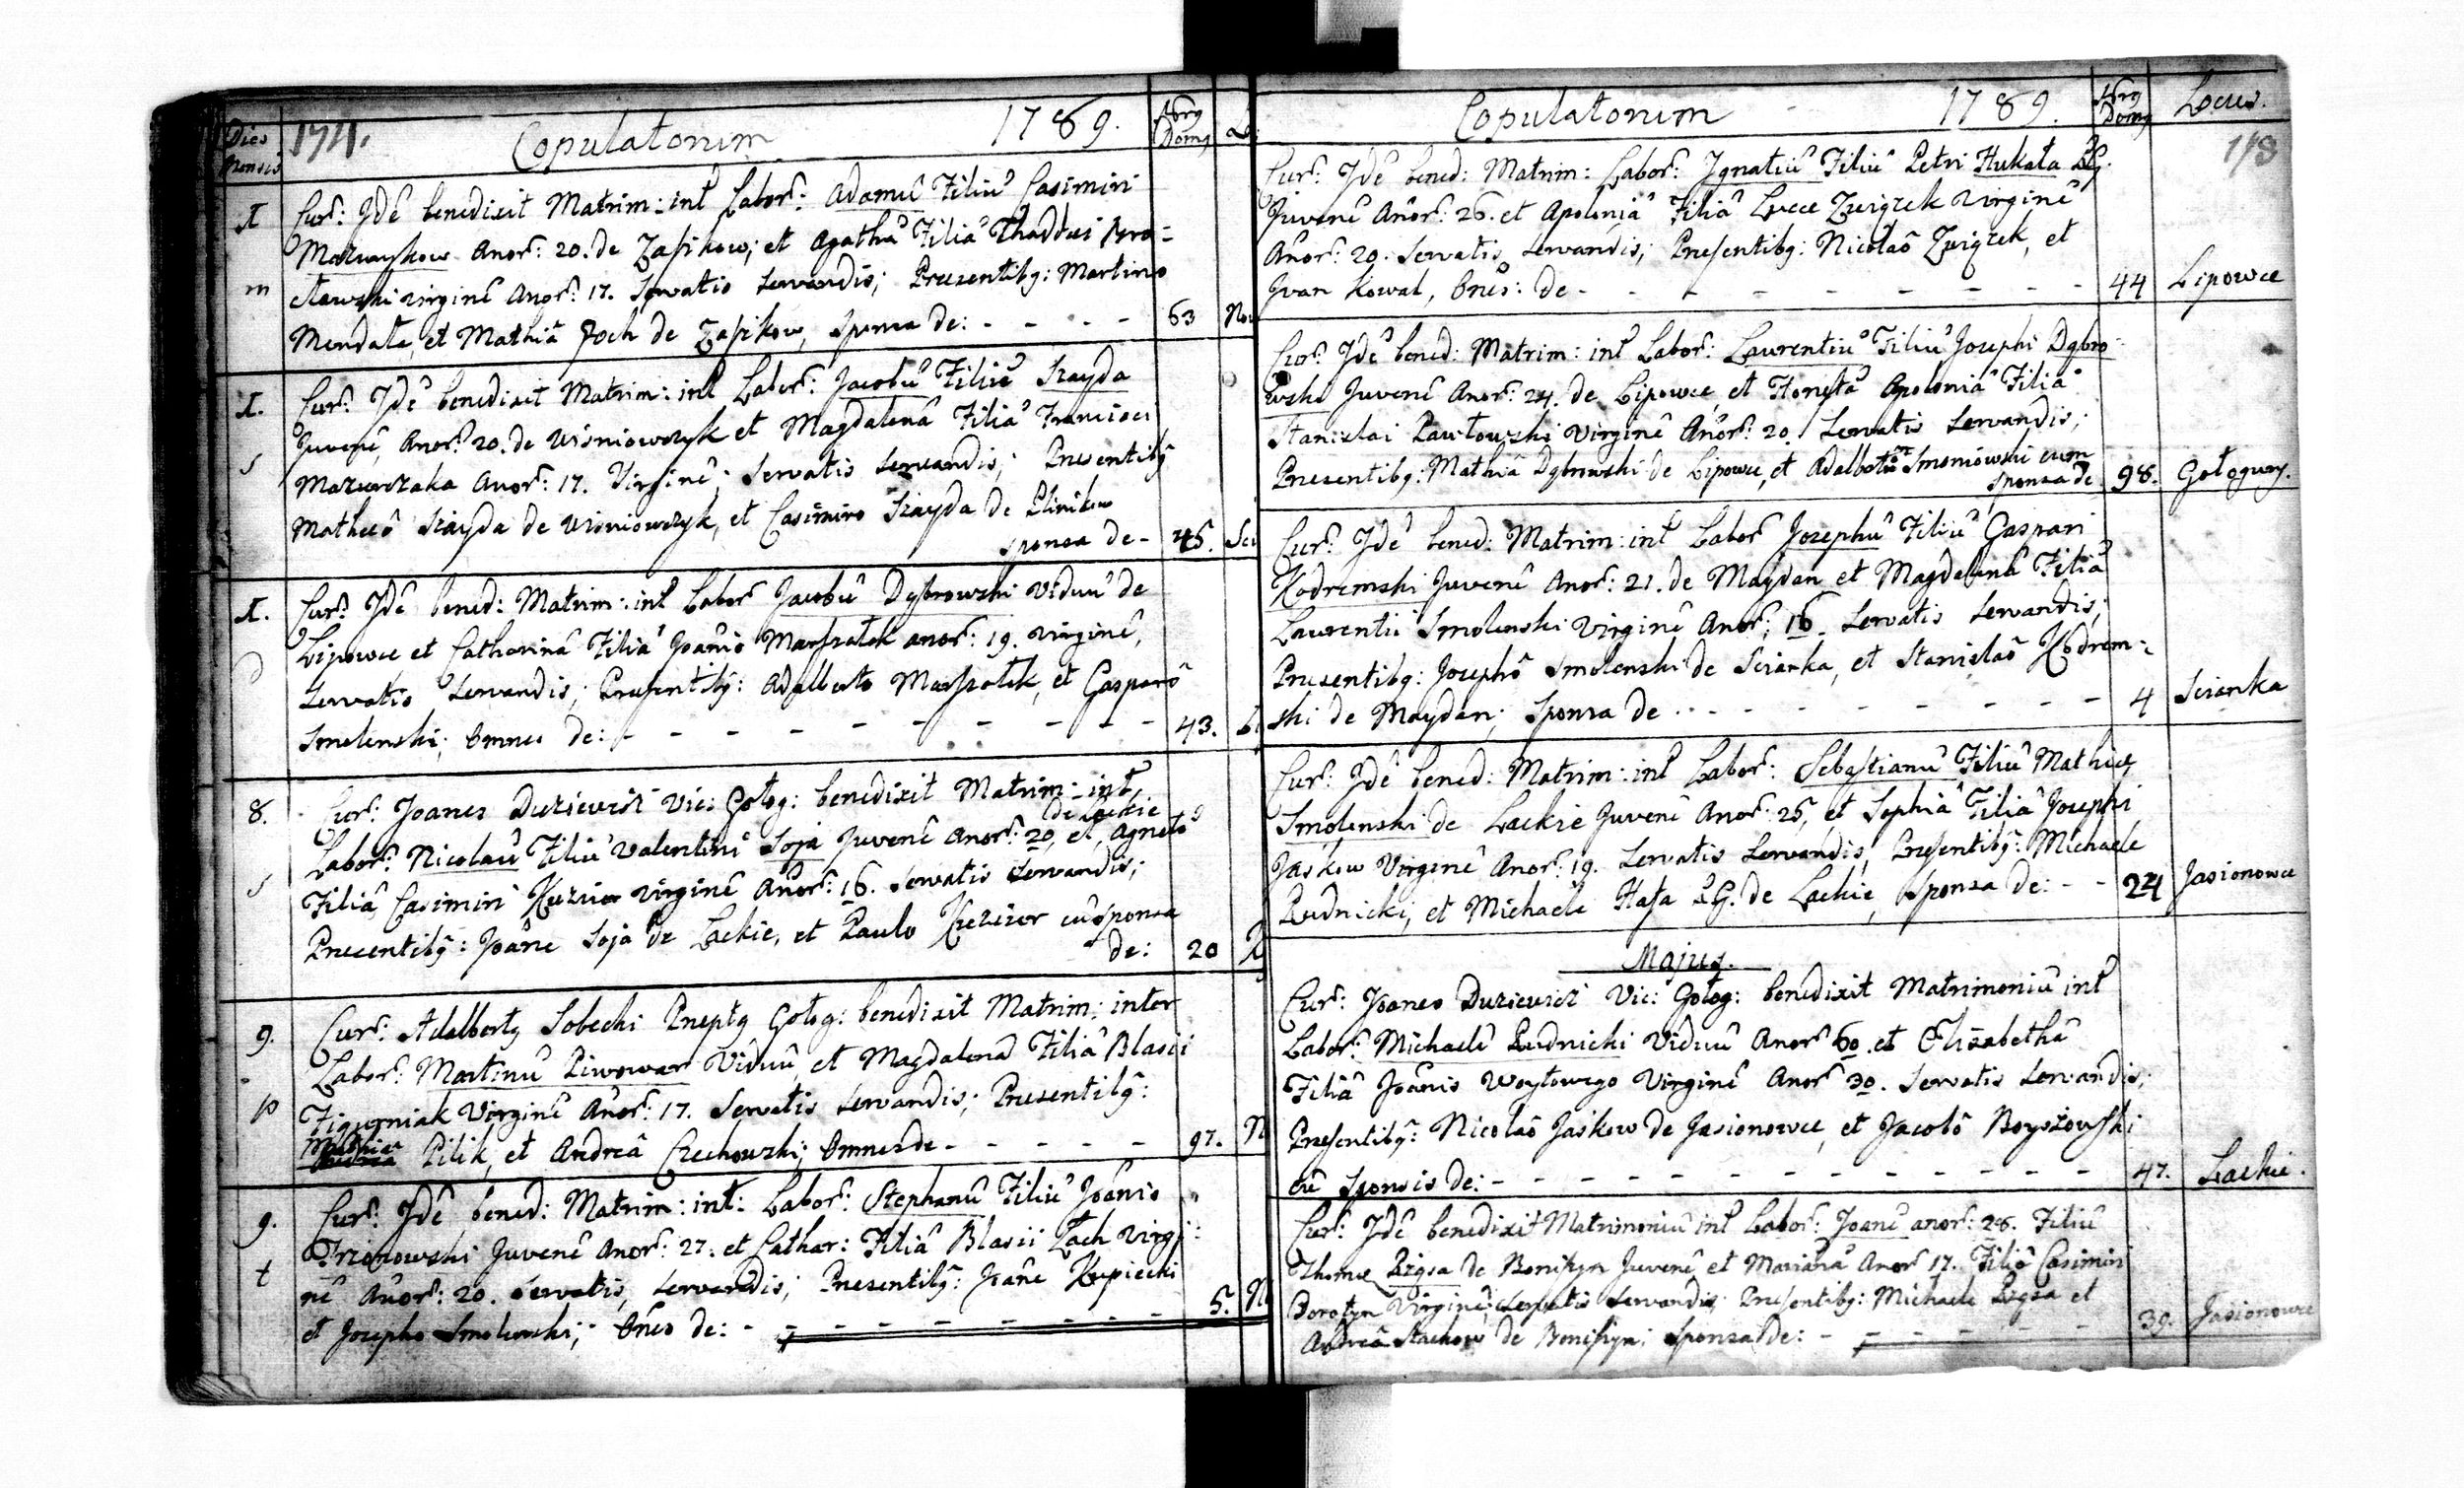 Dies Mensis
1711.
Copulatorum 1789.
Nrg Domg
Cur: Jdê benedixit Matrim: int Labor: Adamû Filiû Casimiri
Anor: 20. de Zapikow; et Agathâ Filiâ Thaddei Bro=
virginê Anor: 17. Servatis Servandis; Presentibg: Martino
m
Mendala, et Mathiâ Foch de Zapikow, Sponsa de: - - - - 63
Cur: Jdê benedixit Matrim: int Labor: Jacobû Filiû Szayda
Juvenê, Anor: 20. de Wisniowczyk et Magdalenâ Filiâ Francisci
s
Mazurczaka Anor: 17. Virginê; Servatis Servandis; Presentibg
Matheô Szayda de Wisniowczyk, et Casimiro Szayda de
sponsa de - 45.
Cur: Jdê bened: Matrim: int Labor Jacobû Dybrowski Viduû de
Lipowce et Catharinâ Filiâ Joanis Marszałek anor: 19. virginê,
Servatis Servandis; Presentibg: Adalberto Marszałek, et Gasparô
Smolenski; Omnes de: - - - - - - - - 43.
8. Cur: Joanes Duziewicz Vic: Gołog: benedixit Matrim: int
de Lackie
Labor: Nicolaû Filiû Valentini Soja Juvenê Anor: 20, et Agnetê
s
Filiâ Casimiri virginê Anor: 16. Servatis Servandis;
Presentibg: Joâne Soja de Lackie, et Paulo cû sponsa
de: 20
9. Cur: Adalbertg Sobecki Prepłg Gołog: benedixit Matrim: inter
Labor: Martinû Piwowar Viduû, et Magdalenâ Filiâ Blasii
p
Figurniak Virginê Anor: 17. Servatis Servandis; Presentibg:
Mathiâ Pilik, et Andreâ Czechowski; Omnes de - - - - - 97.
9. Cur: Jdê bened: Matrim: int: Labor: Stephanû Filiû Joânis
Juvenê Anor: 27. et Cathar: Filiâ Blasii Lach Virgi:
t
nê Anor: 20. Servatis, Servandis; Presentibg: Joâne Kopiecki
et Josepho Smolenski; Ônes de: - - - - - - - - 5.
Copulatorum 1789.
Nrg Domg
Locus.
Cur: Jdê bened: Matrim: Labor: Jgnatiû Filiû Petri Hukała RG.
Juvenê Anor: 26. et Apoloniâ Filiâ Lucæ Zwigzek Virginê
Anor: 20. Servatis Servandis; Presentibg: Nicolaô Zwigzek, et
Jvan Kowal, Ônes: de - - - - - - - - 44 Lipowce
Cur: Jdê bened: Matrim: int Labor: Laurentiû Filiû Josephi Dgbro
wski Juvenê Anor: 24. de Lipowce, et Honestâ Apoloniâ Filiâ
Stanislai Pawłowski Virginê Anor: 20. Servatis Servandis;
Presentibg: Mathiâ Dgbrowski de Lipowce, et Adalbertô Smoniowski cum
sponsa de 98. Gołogury.
Cur: Jdê bened: Matrim: int Labor Josephû Filiû Gaspari
Kodremski Juvenê Anor: 21. de Maydan et Magdalenâ Filiâ
Laurentii Smolenski Virginê Anor: 16. Servatis Servandis;
Presentibg: Josephô Smolenski de Scianka, et Stanislaô Kodrem=
ski de Maydan; Sponsa de - - - - - - - - 4 Scianka
Cur: Jdê bened: Matrim: int Labor: Sebastianû Filiû Mathiæ
Smolenski de Lackie Juvenê Anor: 25, et Sophiâ Filiâ Josephi
Jaskow Virginê Anor: 19. Servatis Servandis, Presentibg: Michaele
Rudnicki, et Michaele Hasa RG. de Lackie, Sponsa de: - - 24 Jasionowce
Majus.
Cur: Joanes Duziewicz Vic: Gołog: benedixit Matrimoniû int
Labor: Michaelê Rudnicki Viduû Anor 60. et Elisabethâ
Filiâ Joânis Woytowego Virginê Anor 30. Servatis Servandis;
Presentibg: Nicolaô Jaskow de Jasionowce, et Jacobô
cû Sponsis de: - - - - - - - - - - 47. Lackie.
Cur: Jdê benedixit Matrimoniû int Labor: Joanê anor: 28. Filiû
Thomæ de Boniszyn Juvenê et Mariânâ Anor 17. Filiâ Casimiri
Dorotyn Virginê; Servatis Servandis; Presentibg: Michaele et
Andreâ Stachow de Boniszyn; Sponsa de: - - - - - 39. Jasionowce